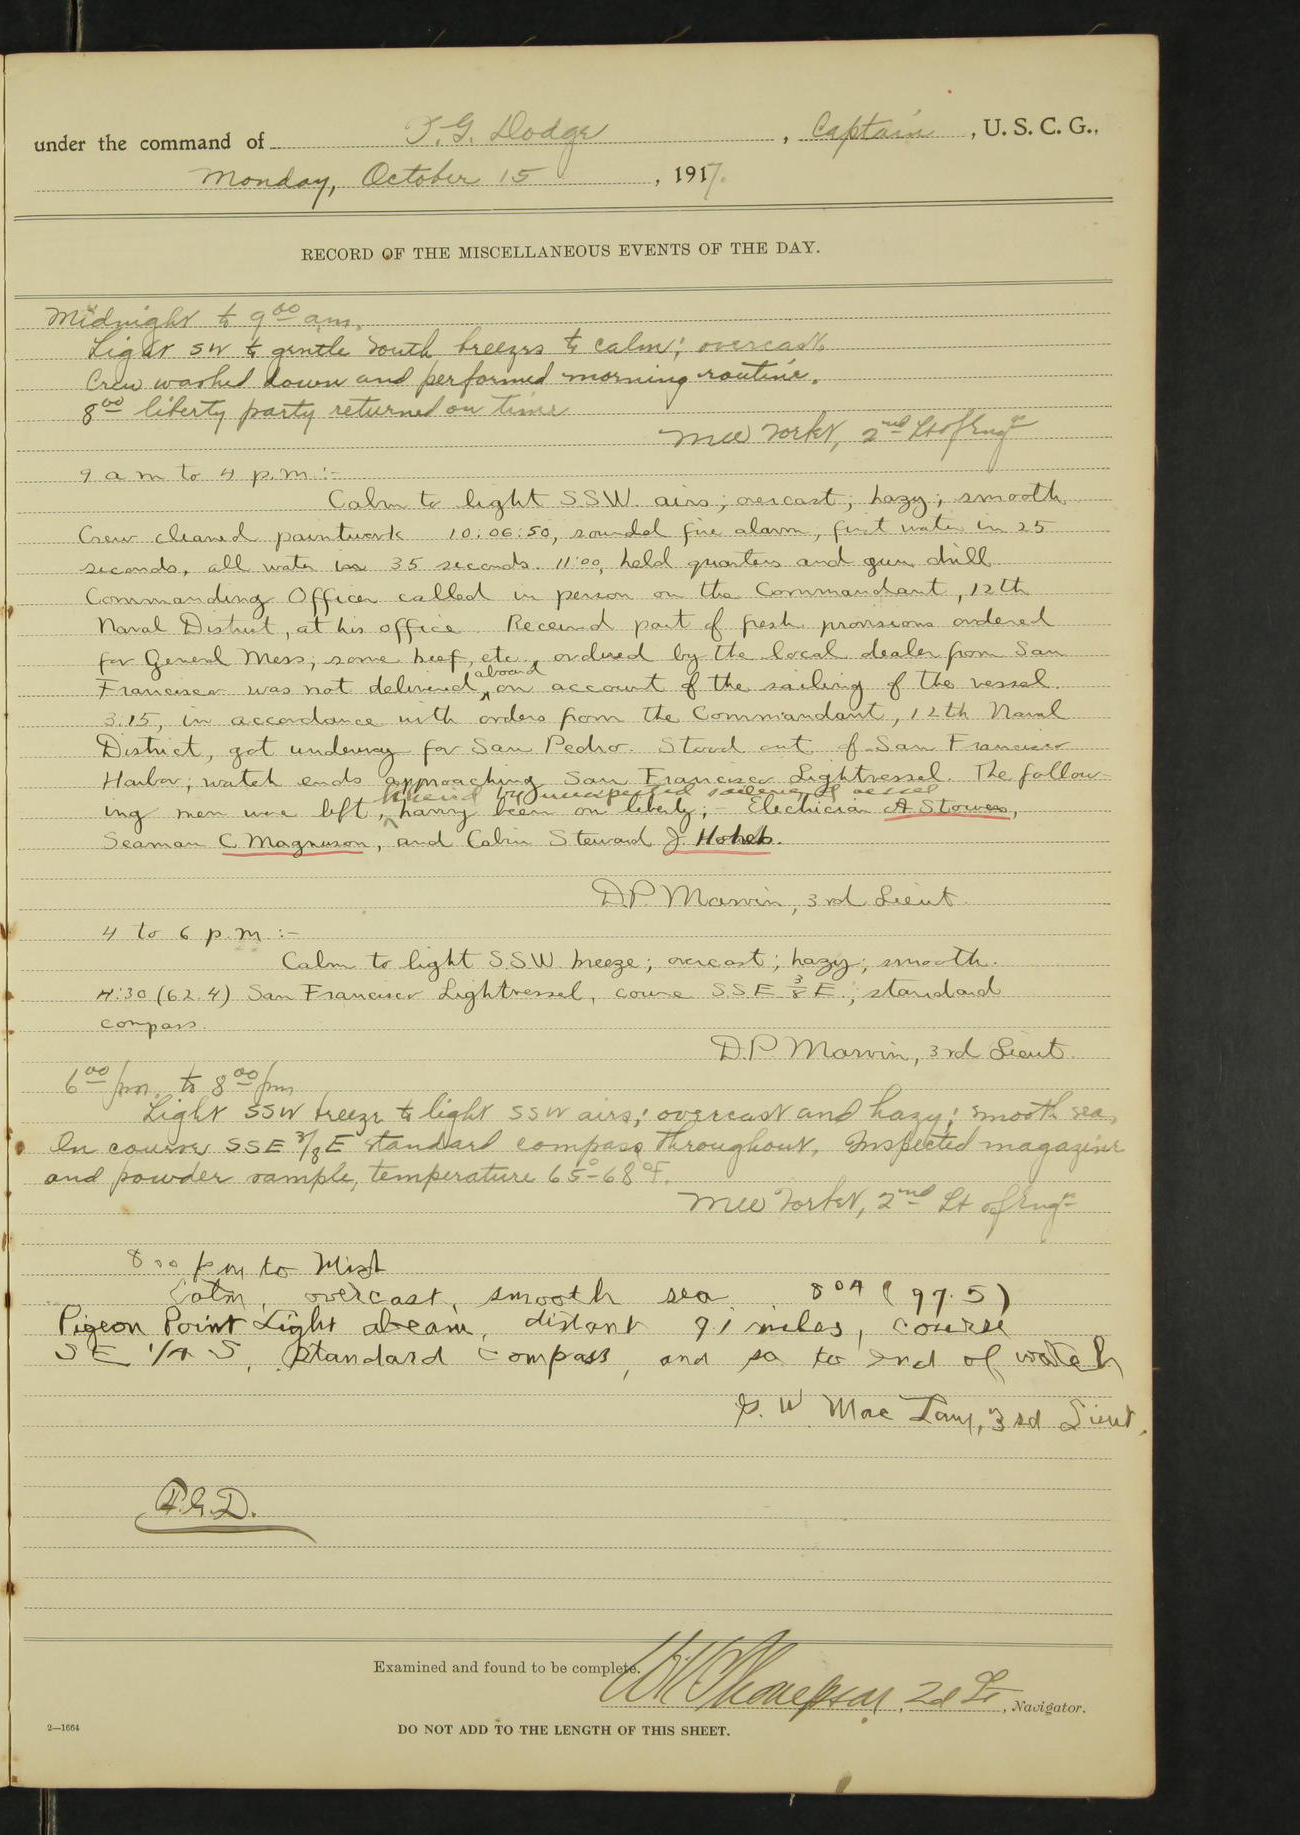 under the command of F. G. Dodge, Captain, U. S. C. G.,
Monday, October 15, 1917.
RECORD OF THE MISCELLANEOUS EVENTS OF THE DAY.
Midnight to 9 00 am.
Light SW to gentle South breezes to calm; overcast
Crew washed down and performed morning routine.
8 00 liberty party returned on time
2nd Lt of Engrs
9 a m to 4 p.m :-
Calm to light SSW airs; overcast; hazy; smooth
Crew cleaned paintwork 10:06:50, sounded fire alarm, first water in 25
seconds, all water in 35 seconds. 11:00, held quarters and gun drill
Commanding Officer called in person on the Commandant, 12th
Naval District, at his office. Received part of fresh provisions ordered
for General Mess; some beef, etc., ordered by the local dealer from San
Francisco was not delivered aboard on account of the sailing of the vessel.
3:15, in accordance with orders from the Commandant, 12th Naval
District, got underway for San Pedro. Stood out of San Francisco
Harbor; watch ends approaching San Francisco Lightvessel. The follow-
ing men were left, by unexpected sailing of vessel having been on liberty;- Electrician A Stowers,
Seaman C Magnuson, and Cabin Steward J.
D.P. Marvin, 3rd Lieut.
4 to 6 p.m :-
Calm to light SSW breeze; overcast; hazy; smooth.
4:30 (62.4) San Francisco Lightvessel, course SSE 3/8 E., standard
compass.
D.P. Marvin, 3rd Lieut.
6 00 pm. to 8 00 pm
Light SSW breeze to light SSW airs; overcast and hazy; smooth sea,
On course SSE 3/8 E standard compass throughout. Inspected magazine
and powder sample, temperature 65°-68°F.
2nd Lt of Engrs
8 00 pm to Midt
Calm, overcast, smooth sea. 8 04 (97.5)
Pigeon Point Light abeam, distant 9.1 miles, course
SE 1/4 S, Standard Compass, and so to end of watch
G. W. Mac 3rd Lieut.
F.G.D.
Examined and found to be complete. Thompson, 2d Lt, Navigator.
2—1664
DO NOT ADD TO THE LENGTH OF THIS SHEET.